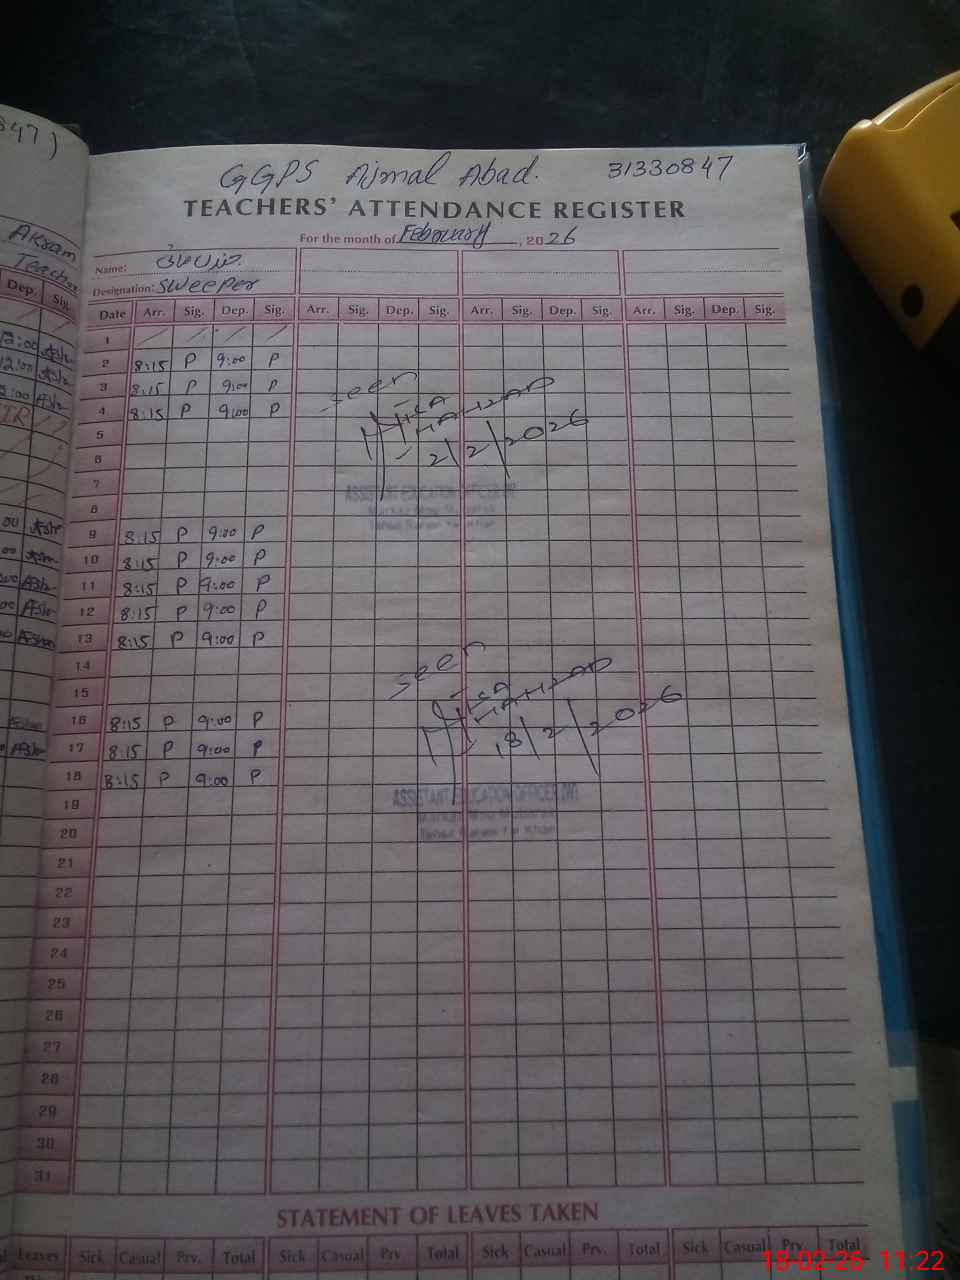 847)
GGPS Ajmal Abad. 31330847
TEACHERS' ATTENDANCE REGISTER
For the month of February, 2026
Name:
Designation: Sweeper
Akram
Teacher
Dep. Sig.
Date Arr. Sig. Dep. Sig. Arr. Sig. Dep. Sig. Arr. Sig. Dep. Sig. Arr. Sig. Dep. Sig.
1
2 8:15 P 9:00 P
3 8:15 P 9:00 P
4 8:15 P 9:00 P
5
6
7
8
9 8:15 P 9:00 P
10 8:15 P 9:00 P
11 8:15 P 9:00 P
12 8:15 P 9:00 P
13 8:15 P 9:00 P
14
15
16 8:15 P 9:00 P
17 8:15 P 9:00 P
18 8:15 P 9:00 P
19
20
21
22
23
24
25
26
27
28
29
30
31
seen
2/2/2026
ASSISTANT EDUCATION OFFICER
seen
18/2/2026
ASSISTANT EDUCATION OFFICER
STATEMENT OF LEAVES TAKEN
Leaves Sick Casual Prv. Total Sick Casual Prv. Total Sick Casual Prv. Total Sick Casual Prv. Total
18-02-26 11:22